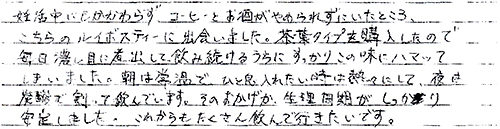 妊活中にもかかわらず コーヒーとお酒がやめられずにいたところ、
こちらのルイボスティーに出会いました。茶葉タイプを購入したので
毎日濃い目に煮出して飲み続けるうちに すっかりこの味にハマッて
しまいました。朝は常温で、ひと息入れたい時は熱々にして、夜は
炭酸で割って飲んでいます。そのおかげか、生理周期がしっかり
安定しました。これからもたくさん飲んで行きたいです。